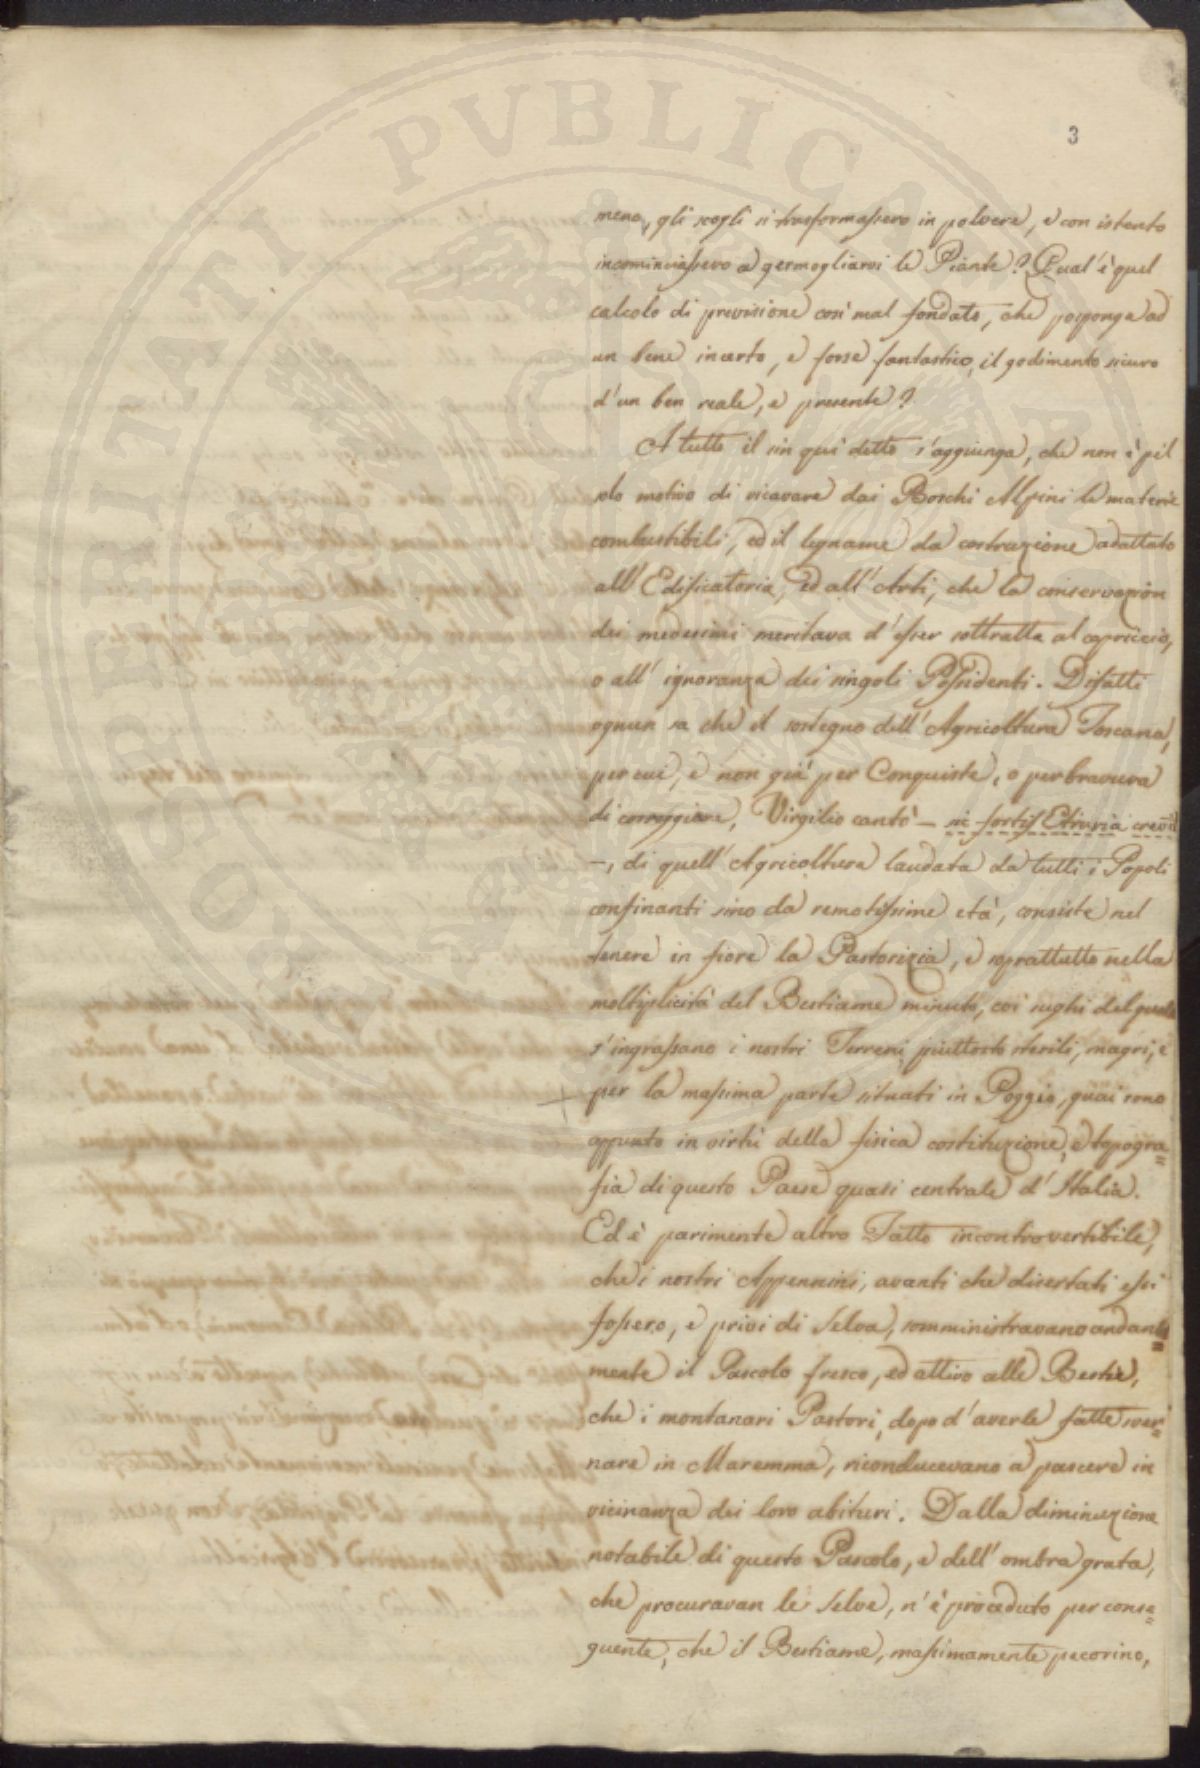 3
meno, gli scogli si trasformassero in polvere, e con istento
incominciassero a germogliarvi le Piante? Qual'è quel
calcolo di previsione così mal fondato, che posponga ad
un bene incerto, e forse fantastico, il godimento sicuro
d'un ben reale, e presente?
A tutto il sin quì detto s'aggiunga, che non è pel
solo motivo di ricavare dai Boschi Alpini le materie
combustibili, ed il legname da costruzione adattato
all'Edificatoria, ed all'Arti, che la conservazion
dei medesimi meritava d'esser sottratta al capriccio,
o all'ignoranza dei singoli Possidenti. Difatti
ognun sa che il sostegno dell'Agricoltura Toscana,
per cui, e non già per Conquiste, o per bravura
di correggiare, Virgilio cantò — sic fortis Etruria crevit
—, di quell'Agricoltura laudata da tutti i Popoli
confinanti sino da remotissime età, consiste nel
tenere in fiore la Pastorizia, e soprattutto nella
moltiplicità del Bestiame minuto, coi sughi del quale
s'ingrassano i nostri Terreni piuttosto sterili, magri, e
per la massima parte situati in Poggio, quai sono
appunto in virtù della fisica costituzione, e topogra=
fia di questo Paese quasi centrale d'Italia.
Ed è parimente altro Fatto incontrovertibile,
che i nostri Appennini, avanti che disertati essi
fossero, e privi di Selva, somministravano andante=
mente il Pascolo fresco, ed attivo alle Bestie,
che i montanari Pastori, dopo d'averle fatte sver=
nare in Maremma, riconducevano a pascere in
vicinanza dei loro abituri. Dalla diminuzione
notabile di questo Pascolo, e dell'ombra grata,
che procuravan le Selve, n'è proceduto per conse=
guente, che il Bestiame, massimamente pecorino,
PROSPERITATI PVBLICAE